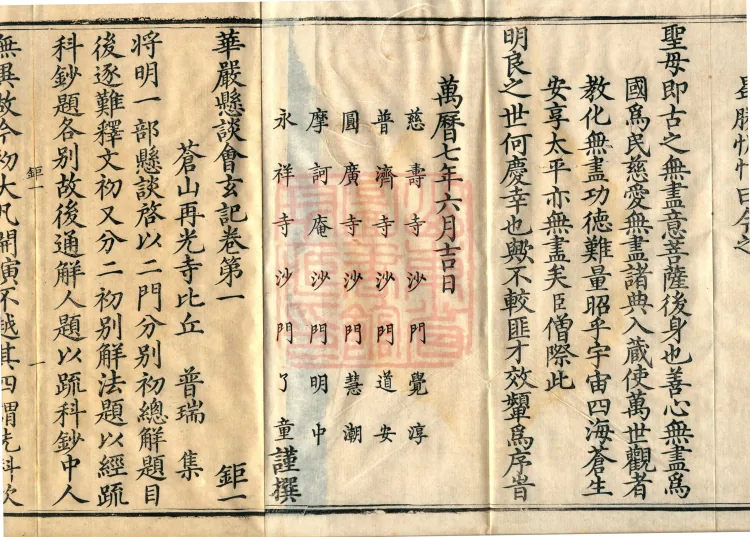 聖母即古之無盡意菩薩後身也善心無盡爲
國爲民慈愛無盡諸典入藏使萬世觀者
教化無盡功德難量昭乎宇宙四海蒼生
安享太平亦無盡矣臣僧際此
明良之世何慶幸也歟不較匪才效顰爲序旹
萬曆七年六月吉日
慈壽寺沙門覺淳
普濟寺沙門道安
圓廣寺沙門慧潮
摩訶庵沙門明中
永祥寺沙門了童謹撰
華嚴懸談會玄記卷第一 鉅一
蒼山再光寺比丘 普瑞 集
將明一部懸談啓以二門分別初總解題目
後逐難釋文初又分二初別解法題以經䟽
科鈔題各別故後通解人題以䟽科鈔中人
鉅一 一
無異故今初大凡開演不越其四謂先科次